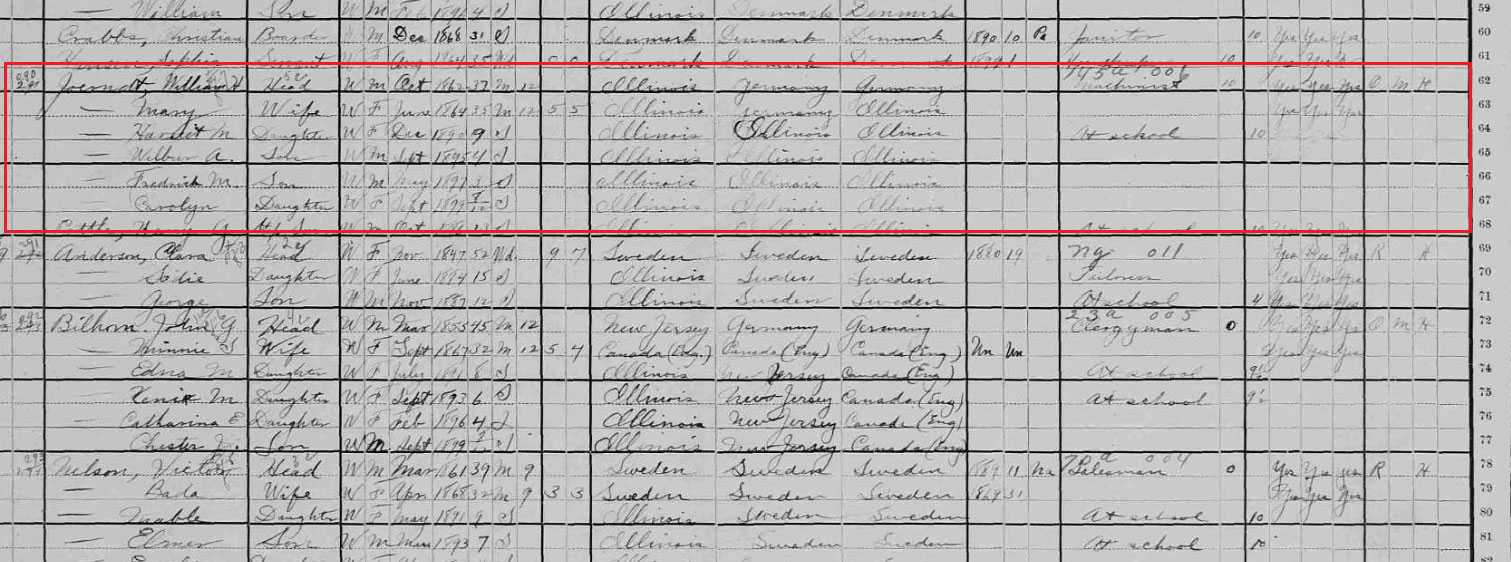 William Son W M Feb 1896 4 S Illinois Denmark Denmark 59
Crabbs, Christian Boarder W M Dec 1868 31 S Denmark Denmark Denmark 1890 10 Pa Janitor 10 Yes Yes Yes 60
Sophia Servant W F Aug 1864 35 Wd Denmark 61
William H Head W M Oct 1862 37 M 12 Illinois Germany Germany Machinist 10 Yes Yes Yes O M H 62
— Mary Wife W F June 1864 35 M 12 5 5 Illinois Germany Illinois Yes Yes Yes 63
— Harriet M Daughter W F Dec 1890 9 S Illinois Illinois Illinois At school 10 64
— Wilbur A. Son W M Sept 1895 4 S Illinois Illinois Illinois 65
— Fredrick M. Son W M May 1897 3 S Illinois Illinois Illinois 66
— Carolyn Daughter W F Sept 1899 S Illinois Illinois Illinois 67
W M Oct At school 68
Anderson, Clara Head W F Nov 1847 52 Wd 9 7 Sweden Sweden Sweden 1880 19 ng 011 Yes Yes Yes R H 69
— Daughter W F June 1884 15 S Illinois Sweden Sweden Yes Yes Yes 70
— George Son W M Nov 1887 12 S Illinois Sweden Sweden At school 4 Yes Yes Yes 71
Bilhorn, John G Head W M Mar 1855 45 M 12 New Jersey Germany Germany 23a 005 Clergyman 0 Yes Yes Yes O M H 72
— Minnie S Wife W F Sept 1867 32 M 12 5 4 Canada (Eng.) Canada (Eng) Canada (Eng) Un Un Yes Yes Yes 73
— Edna M Daughter W F July 1891 8 S Illinois New Jersey Canada (Eng) At school 9½ 74
— M Daughter W F Sept 1893 6 S Illinois New Jersey Canada (Eng) At school 9½ 75
Catharina E Daughter W F Feb 1896 4 S Illinois New Jersey Canada (Eng) 76
— Chester Son W M Sept 1899 S Illinois New Jersey Canada (Eng) 77
Nelson, Victor Head W M Mar 1861 39 M 9 Sweden Sweden Sweden 1889 11 Na 004 Salesman 0 Yes Yes Yes R H 78
— Bada Wife W F Apr 1868 32 M 9 3 3 Sweden Sweden Sweden 1869 31 Yes Yes Yes 79
— Mable Daughter W F May 1891 9 S Illinois Sweden Sweden At school 10 80
— Elmer Son W M Mar 1893 7 S Illinois Sweden Sweden At school 10 81